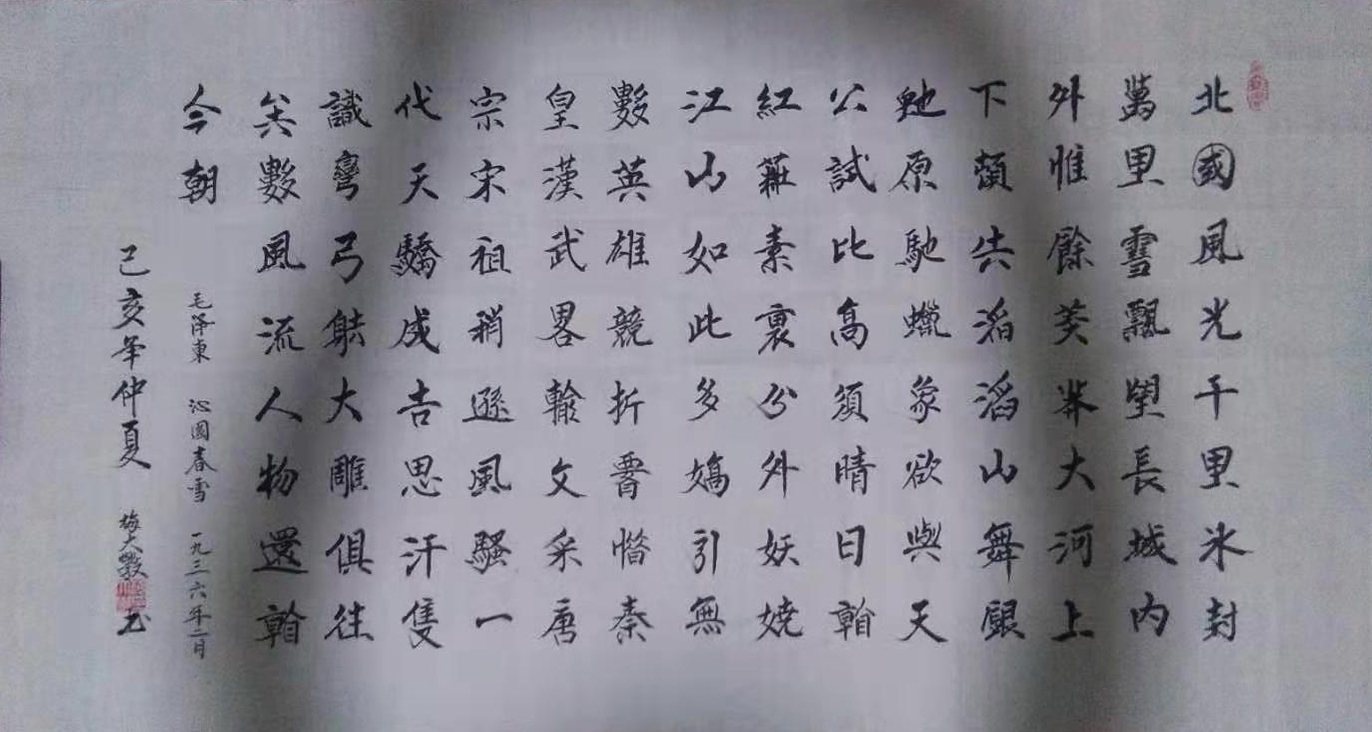 北國風光千里冰封
萬里雪飄望長城內
外惟餘莽莽大河上
下頓失滔滔山舞銀
虵原馳蠟象欲與天
公試比高須晴日看
紅裝素裹分外妖嬈
江山如此多嬌引無
數英雄競折腰惜秦
皇漢武畧輸文采唐
宗宋祖稍遜風騷一
代天驕成吉思汗隻
識彎弓射大雕俱往
矣數風流人物還看
今朝
毛泽東 沁園春雪 一九三六年二月
己亥年仲夏 梅大